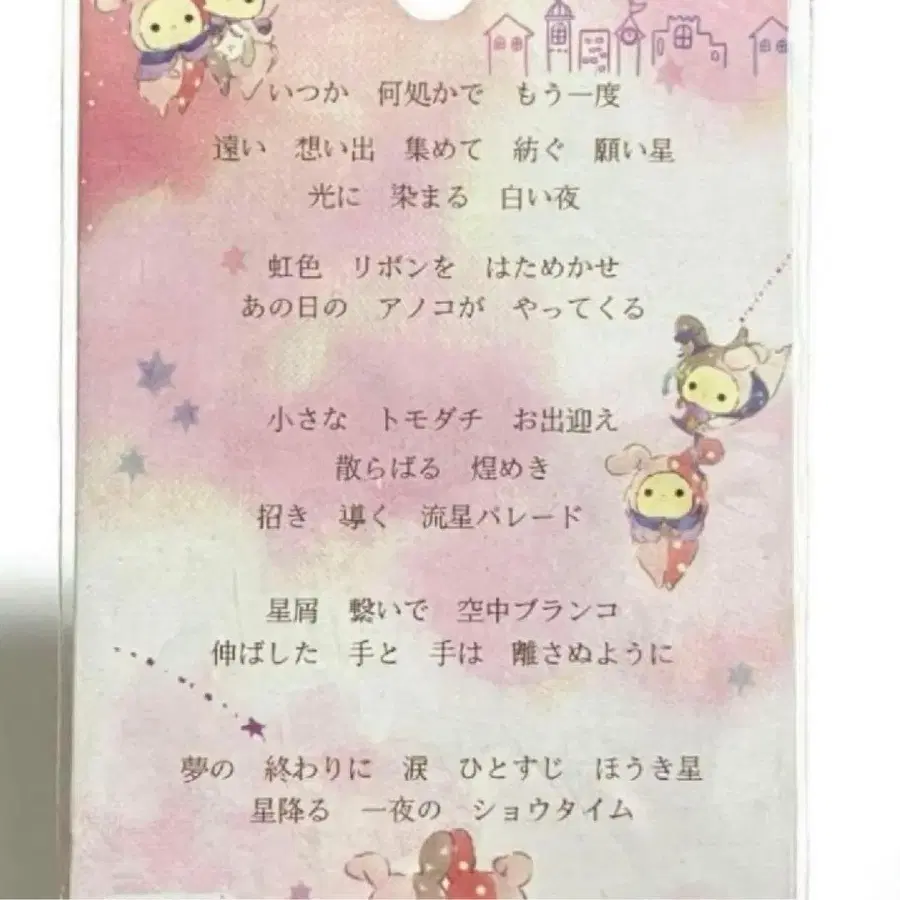 いつか　何処かで　もう一度
遠い　想い出　集めて　紡ぐ　願い星
光に　染まる　白い夜
虹色　リボンを　はためかせ
あの日の　アノコが　やってくる
小さな　トモダチ　お出迎え
散らばる　煌めき
招き　導く　流星パレード
星屑　繋いで　空中ブランコ
伸ばした　手と　手は　離さぬように
夢の　終わりに　涙　ひとすじ　ほうき星
星降る　一夜の　ショウタイム